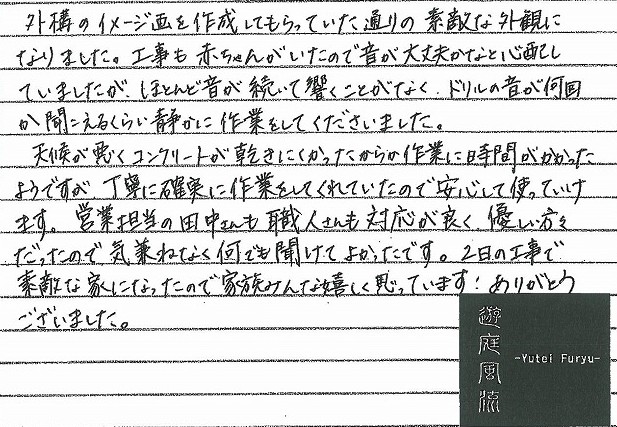 外構のイメージ画を作成してもらっていた通りの素敵な外観に
なりました。工事も赤ちゃんがいたので音が大丈夫かなと心配し
ていましたが、ほとんど音が続いて響くことがなく、ドリルの音が何回
か聞こえるくらい静かに作業をしてくださいました。
天候が悪くコンクリートが乾きにくかったからか作業に時間がかかった
ようですが丁寧に確実に作業をしてくれていたので安心して使っていけ
ます。営業担当の田中さんも職人さんも対応が良く優しい方々
だったので気兼ねなく何でも聞けてよかったです。2日の工事で
素敵な家になったので家族みんな嬉しく思っています!ありがとう
ございました。
遊庭風流
-Yutei Furyu-